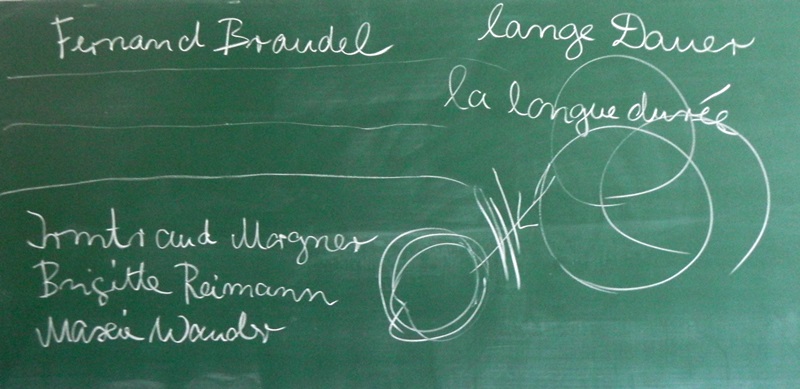 Fernand Braudel
lange Dauer
la longue durée
Irmtraud Morgner
Brigitte Reimann
Maxie Wander